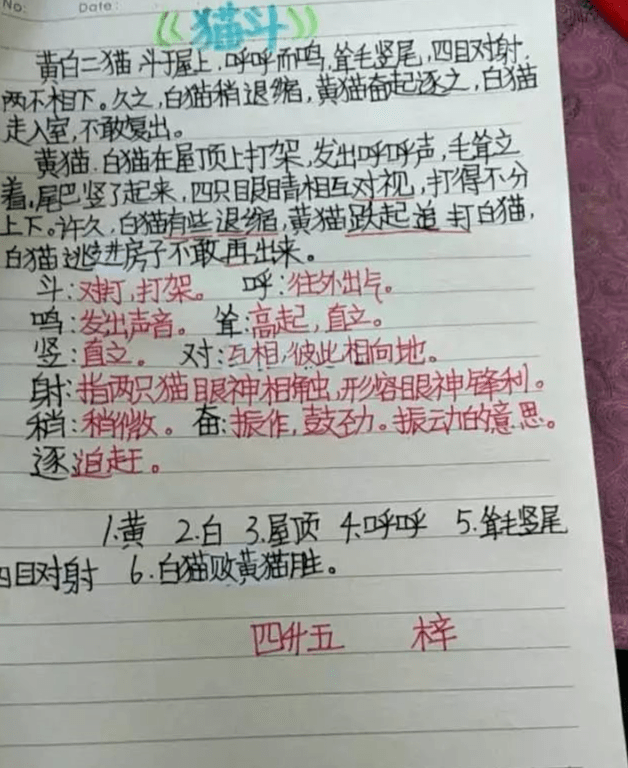 No:
Date:
《猫斗》
黄白二猫,斗于屋上,呼呼而鸣,耸毛竖尾,四目对射,
两不相下。久之,白猫稍退缩,黄猫奋起逐之,白猫
走入室,不敢复出。
黄猫.白猫在屋顶上打架,发出呼呼声,毛耸立
着,尾巴竖了起来,四只眼睛相互对视,打得不分
上下。许久,白猫有些退缩,黄猫跌起追打白猫,
白猫逃进房子不敢再出来。
斗:对打,打架。 呼:往外出气。
鸣:发出声音。 耸:高起,直立。
竖:直立。 对:互相,彼此相向地。
射:指两只猫眼神相触,形容眼神锋利。
稍:稍微。 奋:振作,鼓劲。振动的意思。
逐追赶。
1.黄 2.白 3.屋顶 4.呼呼 5.耸毛竖尾
四目对射 6.白猫败黄猫胜。
四升五 梓